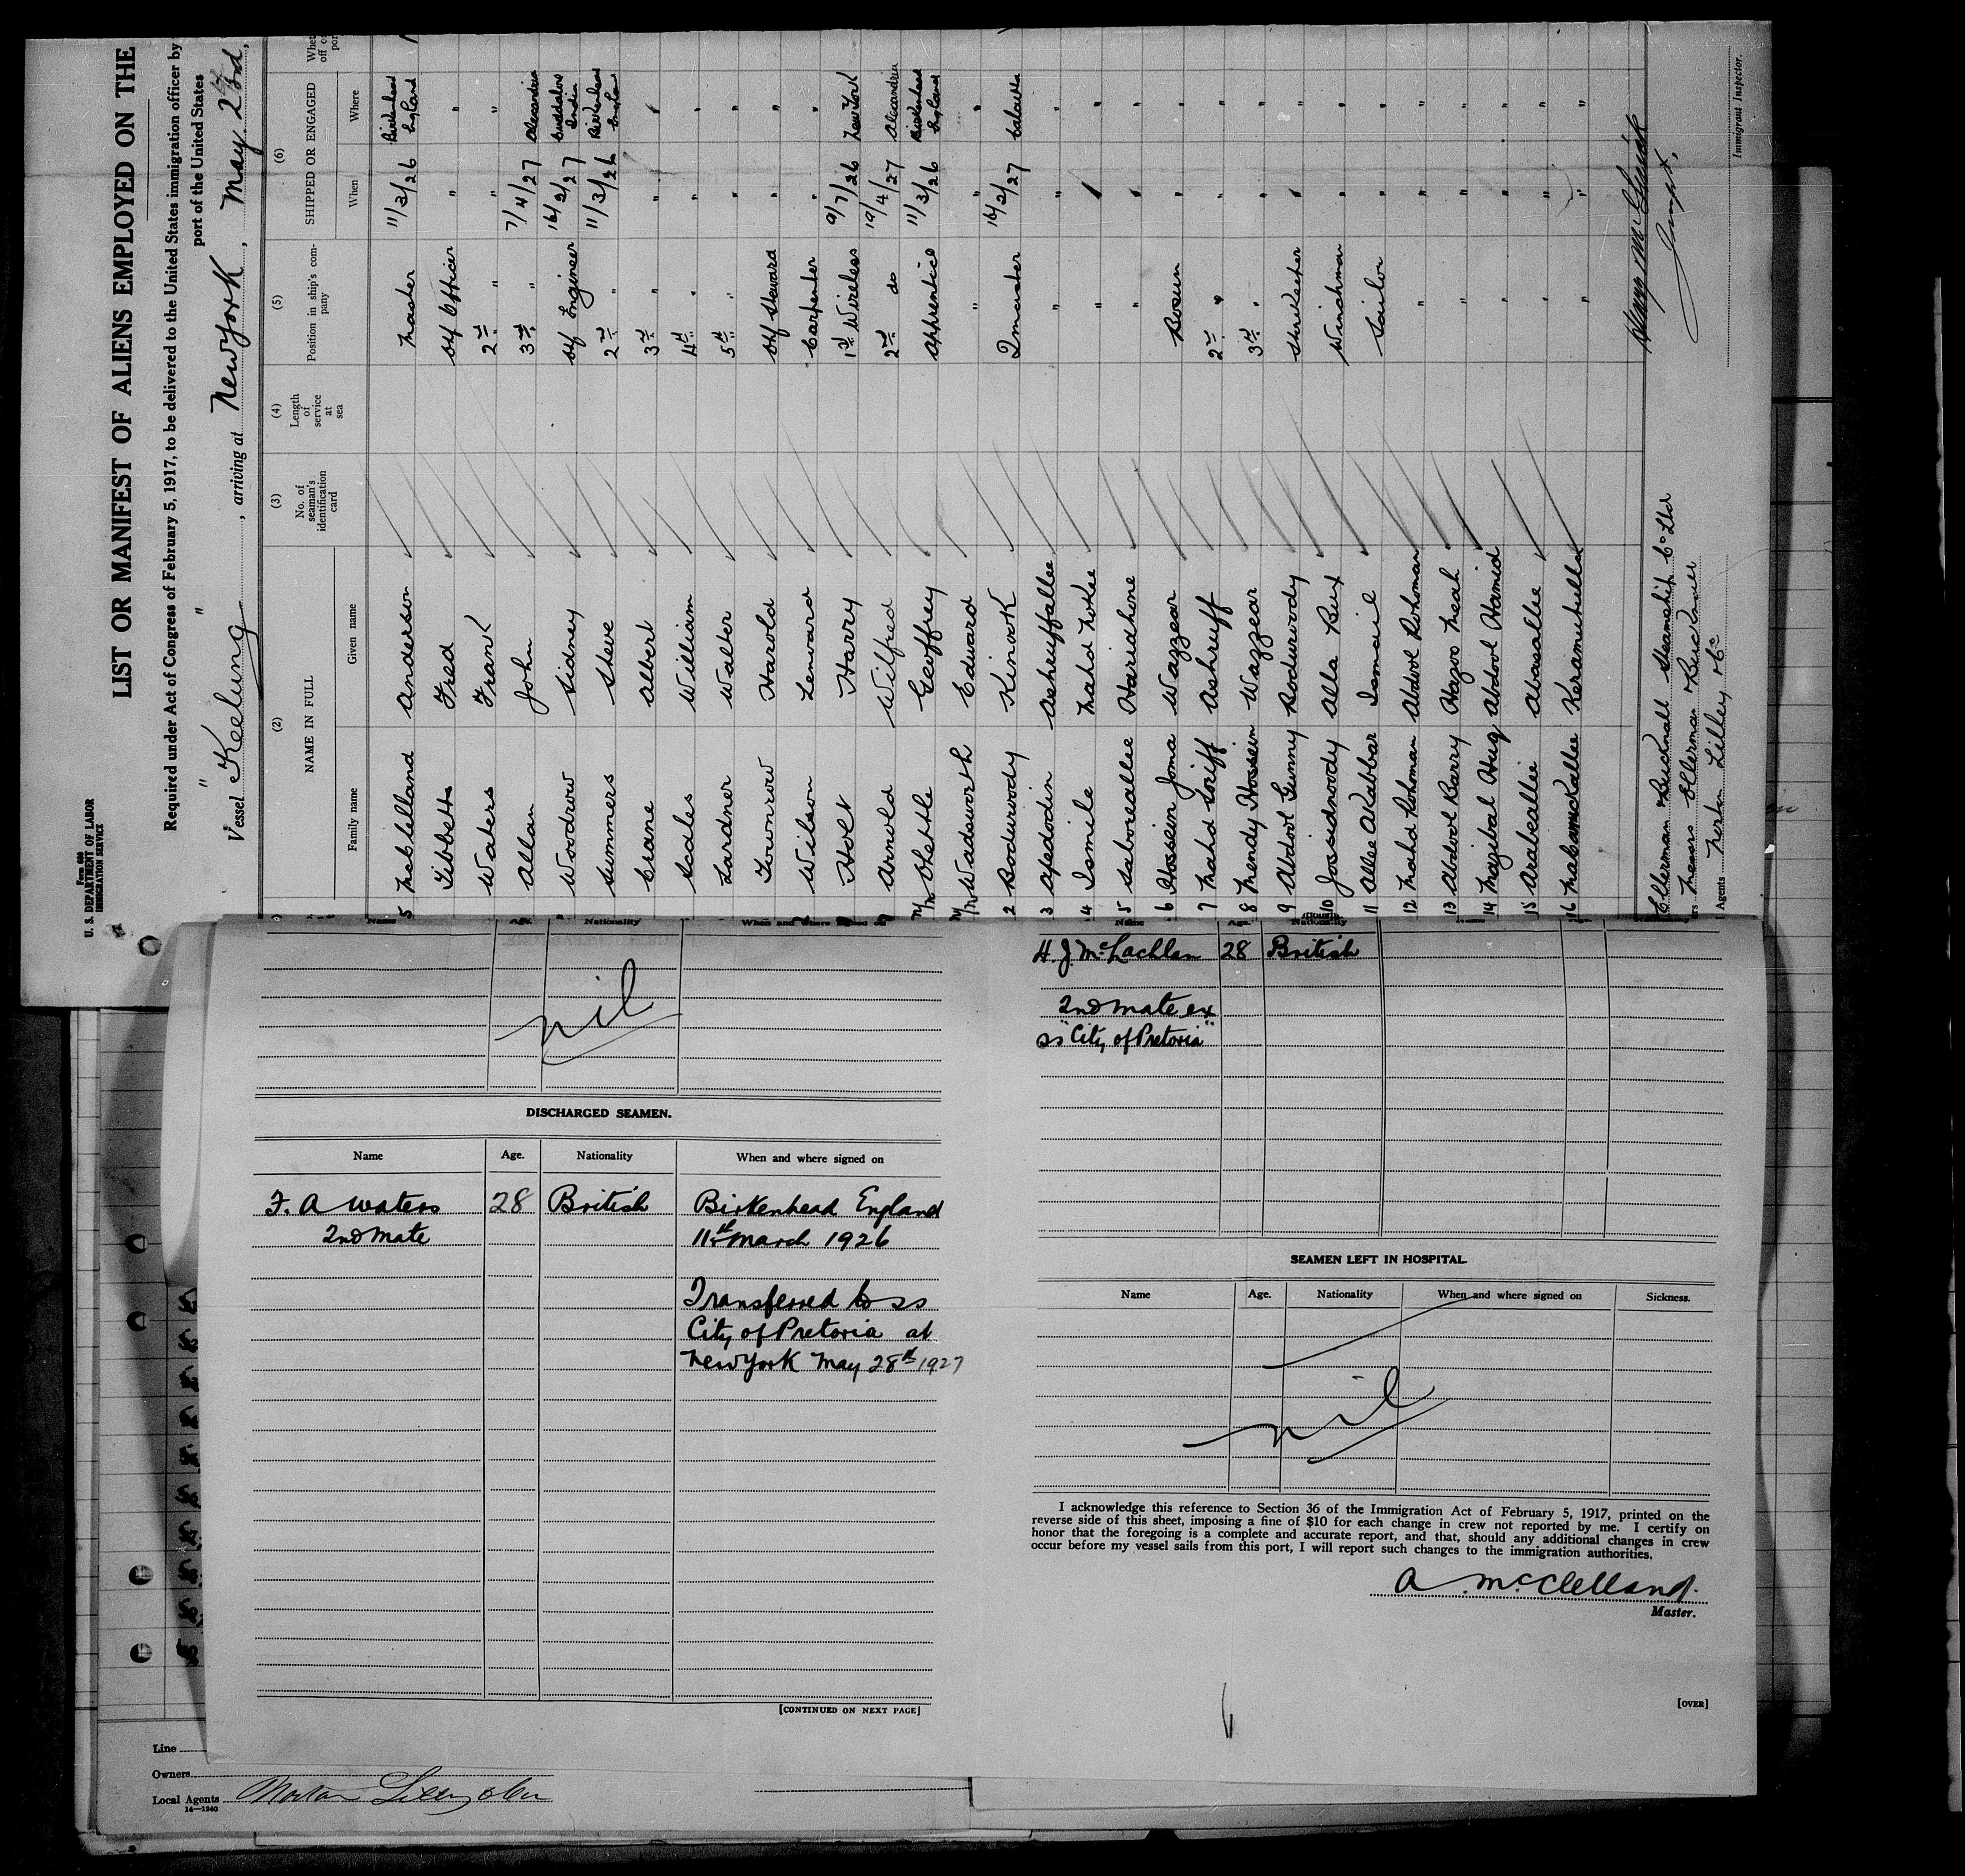 U. S. DEPARTMENT OF LABOR
IMMIGRATION SERVICE
LIST OR MANIFEST OF ALIENS EMPLOYED ON THE
Required under Act of Congress of February 5, 1917, to be delivered to the United States immigration officer by
port of the United States
Vessel Keelung, arriving at New York, May 23rd,
(2) (3) (4) (5) (6)
NAME IN FULL No. of seaman's identification card Length of service at sea Position in ship's company SHIPPED OR ENGAGED
Family name Given name When Where
5 McClelland Anderson Master 11/3/26 Birkenhead England
Tibbetts Fred Chf Officer " "
Waters Frank 2nd " " "
Allan John 3rd " 7/4/27 Alexandria
Woodrow Sidney Chf Engineer 16/2/27 India
Summers Steve 2nd " 11/3/26 Birkenhead England
Crane Albert 3rd " " "
Scales William 4th " " "
Lardner Walter 5th " " "
Townrow Harold Chf Steward " "
Wilson Lenoard Carpenter " "
Holt Harry 1st Wireless 9/7/26 New York
Arnold Wilfred 2nd do 19/4/27 Alexandria
Geoffrey Apprentice 11/3/26 Birkenhead England
Wadsworth Edward " " "
2 Bodurwody Kinook 16/2/27 Calcutta
3 Afedodin Ashruffallee " " "
4 Ismile Mahd Mokee " " "
5 Saboreallee Haridhone " " "
6 Hossein Joma Wazzear Bosun " "
7 Mahd Soriff Ashruff 2nd " " "
8 Mendy Hossein Wazzear 3rd " " "
9 Abdool Gunny Bodurwody " "
10 Alla Bux Winchman " "
11 Allee Akabbar Ismail Sailor " "
12 Mahd Rohoman Abdool Rohoman " " "
13 Abdool Barry Hazoo Meah " " "
14 Mazibal Huq Abdool Hamid " " "
15 Arabeallee Abasallee " " "
16 Keramutulla " " "
Ellerman Bucknall Steamship Co Ltd
Messrs Ellerman Bucknall
Agents Norton Lilley & Co
Immigrant Inspector.
nil
DISCHARGED SEAMEN.
Name Age. Nationality When and where signed on
F. A Waters 28 British Birkenhead England
2nd Mate 11th March 1926
Transferred to ss
City of Pretoria at
New York May 28th 1927
[CONTINUED ON NEXT PAGE]
Line
Owners
Local Agents Norton Lilly & Co
14—1240
Name Age. Nationality
H. J. McLachlan 28 British
2nd mate ex
ss "City of Pretoria"
SEAMEN LEFT IN HOSPITAL.
Name Age. Nationality When and where signed on Sickness.
nil
I acknowledge this reference to Section 36 of the Immigration Act of February 5, 1917, printed on the
reverse side of this sheet, imposing a fine of $10 for each change in crew not reported by me. I certify on
honor that the foregoing is a complete and accurate report, and that, should any additional changes in crew
occur before my vessel sails from this port, I will report such changes to the immigration authorities.
A McClelland.
Master.
[OVER]